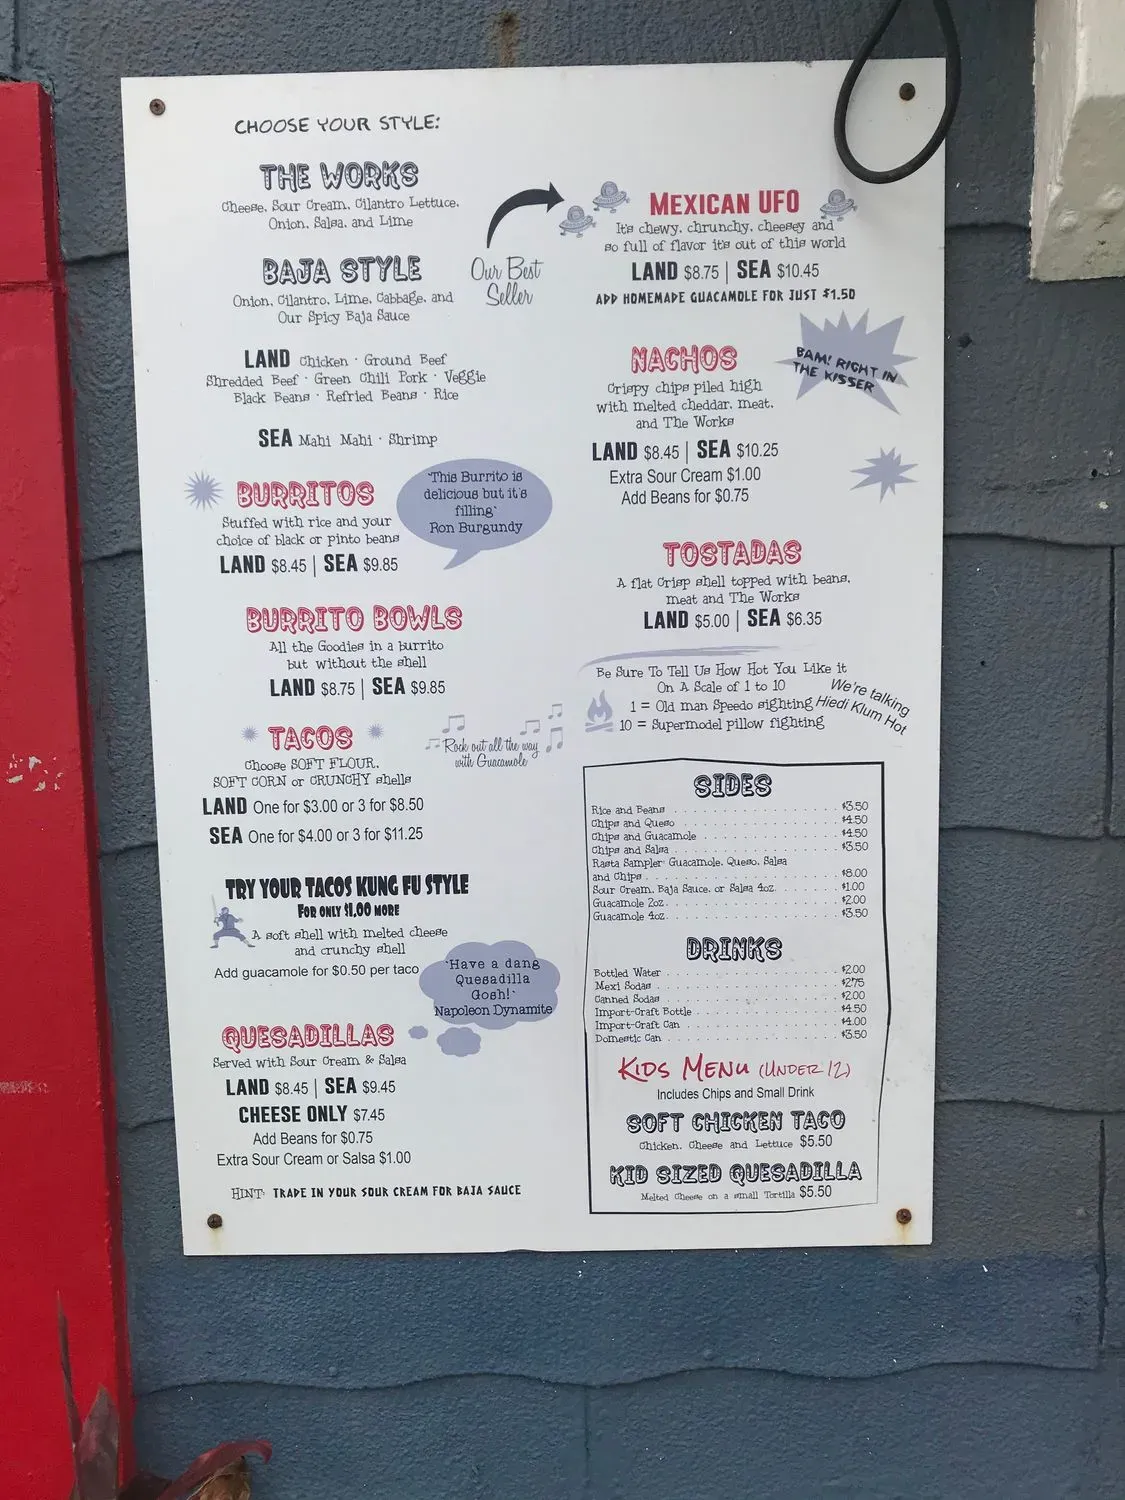 CHOOSE YOUR STYLE:
THE WORKS
Cheese, Sour Cream, Cilantro Lettuce,
Onion, Salsa, and Lime
BAJA STYLE
Onion, Cilantro, Lime, Cabbage, and
Our Spicy Baja Sauce
LAND Chicken · Ground Beef
Shredded Beef · Green Chili Pork · Veggie
Black Beans · Refried Beans · Rice
SEA Mahi Mahi · Shrimp
BURRITOS
Stuffed with rice and your
choice of black or pinto beans
LAND $8.45 | SEA $9.85
"This Burrito is
delicious but it's
filling"
Ron Burgundy
BURRITO BOWLS
All the Goodies in a burrito
but without the shell
LAND $8.75 | SEA $9.85
TACOS
Choose SOFT FLOUR,
SOFT CORN or CRUNCHY shells
LAND One for $3.00 or 3 for $8.50
SEA One for $4.00 or 3 for $11.25
Rock out all the way
with Guacamole
TRY YOUR TACOS KUNG FU STYLE
FOR ONLY $1.00 MORE
A soft shell with melted cheese
and crunchy shell
Add guacamole for $0.50 per taco
"Have a dang
Quesadilla
Gosh!"
Napoleon Dynamite
QUESADILLAS
Served with Sour Cream & Salsa
LAND $8.45 | SEA $9.45
CHEESE ONLY $7.45
Add Beans for $0.75
Extra Sour Cream or Salsa $1.00
HINT: TRADE IN YOUR SOUR CREAM FOR BAJA SAUCE
Our Best
Seller
MEXICAN UFO
It's chewy, chrunchy, cheesey and
so full of flavor it's out of this world
LAND $8.75 | SEA $10.45
ADD HOMEMADE GUACAMOLE FOR JUST $1.50
NACHOS
Crispy chips piled high
with melted cheddar, meat,
and The Works
LAND $8.45 | SEA $10.25
Extra Sour Cream $1.00
Add Beans for $0.75
BAM! RIGHT IN
THE KISSER
TOSTADAS
A flat Crisp shell topped with beans,
meat and The Works
LAND $5.00 | SEA $6.35
Be Sure To Tell Us How Hot You Like it
On A Scale of 1 to 10
1 = Old man Speedo sighting
10 = Supermodel pillow fighting
We're talking
Hiedi Klum Hot
SIDES
Rice and Beans $3.50
Chips and Queso $4.50
Chips and Guacamole $4.50
Chips and Salsa $3.50
Rasta Sampler: Guacamole, Queso, Salsa
and Chips $8.00
Sour Cream, Baja Sauce, or Salsa 4oz $1.00
Guacamole 2oz $2.00
Guacamole 4oz $3.50
DRINKS
Bottled Water $2.00
Mexi Sodas $2.75
Canned Sodas $2.00
Import-Craft Bottle $4.50
Import-Craft Can $4.00
Domestic Can $3.50
KIDS MENU (UNDER 12)
Includes Chips and Small Drink
SOFT CHICKEN TACO
Chicken, Cheese and Lettuce $5.50
KID SIZED QUESADILLA
Melted Cheese on a small Tortilla $5.50